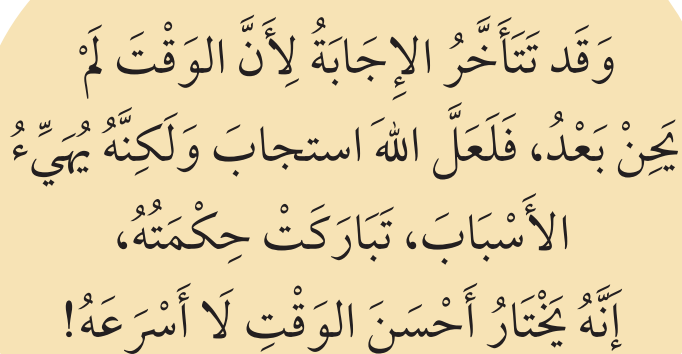 وَقَد تَتَأَخَّرُ الإِجَابَةُ لِأَنَّ الوَقْتَ لَمْ
يَحِنْ بَعْدُ، فَلَعَلَّ اللهَ استجابَ وَلَكِنَّهُ يُهَيِّءُ
الأَسْبَابَ، تَبَارَكَتْ حِكْمَتُهُ،
إِنَّهُ يَخْتَارُ أَحْسَنَ الوَقْتِ لَا أَسْرَعَهُ!